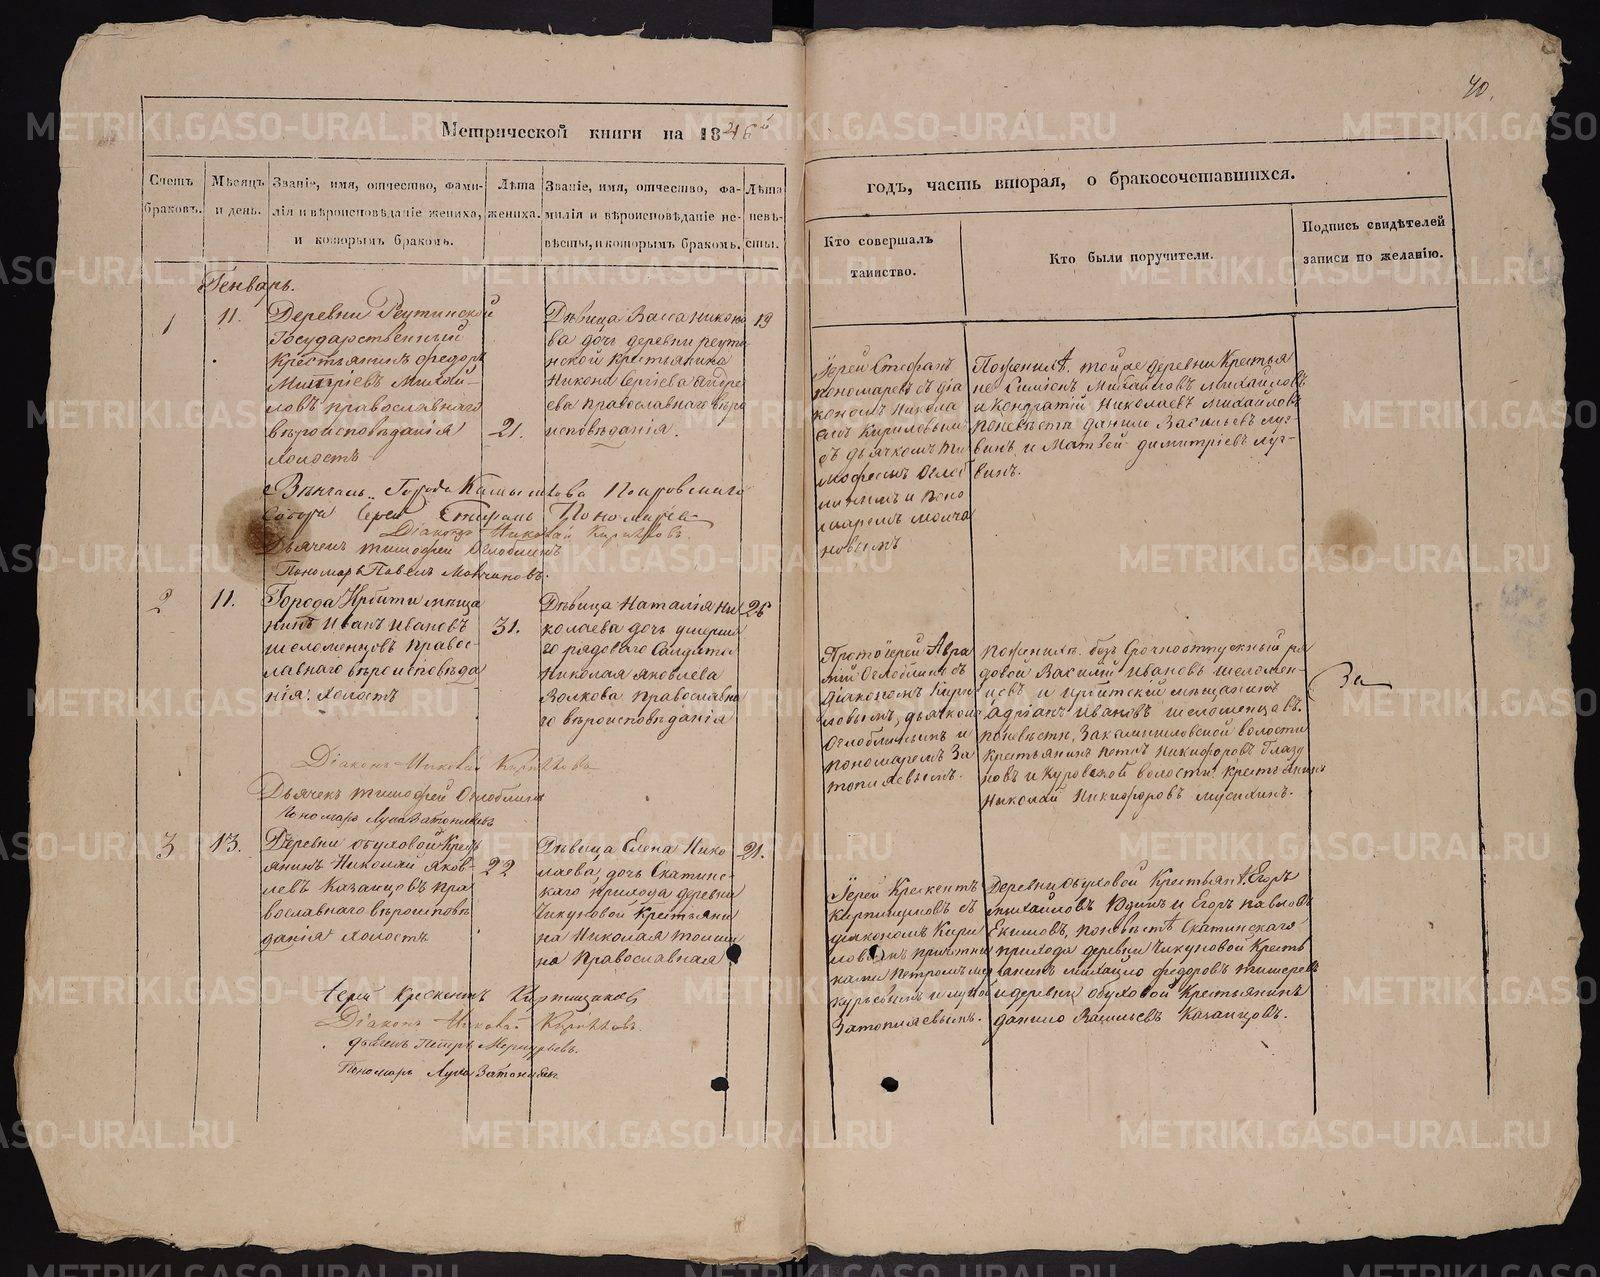 40.
Метрической книги на 1846й
годъ, часть вторая, о бракосочетавшихся.
Счетъ браковъ.
Мѣсяцъ и день.
Званіе, имя, отчество, фами-
лія и вѣроисповѣданіе жениха,
и которымъ бракомъ.
Лѣта
жениха.
Званіе, имя, отчество, фа-
милія и вѣроисповѣданіе не-
вѣсты, и которымъ бракомъ.
Лѣта
невѣ-
сты.
Кто совершалъ
таинство.
Кто были поручители.
Подпись свидѣтелей
записи по желанію.
Генварь.
1
11.
Деревни Реутинской
Государственный
крестьянинъ Федоръ
Михай-
ловъ православнаго
вѣроисповѣданія
холостъ
21.
Дѣвица Васса Никоно
ва дочь деревни реути
нской крестьянина
Никона Сергіева Андре
ева православнаго вѣро
исповѣданія.
19
Іерей Стефанъ
Пономаревъ съ діа
кономъ Никола
емъ Кириловымъ
съ дьячкомъ Ти
мофеемъ Оглоб
линымъ и поно
маремъ Молча
новымъ
той же деревни Крестья
не Симіонъ Михайловъ Михайловъ
и Кондратій Николаевъ Михайловъ
поневѣстѣ данило Васильевъ луг
винъ и Матвей димитріевъ луг-
винъ.
Вѣнчалъ Города Камышлова Покровскаго
Собора Іерей Стефанъ Пономаревъ
Діаконъ Николай Кирилловъ.
Дьячекъ тимофей Оглоблинъ
Пономарь Павелъ Молчановъ.
2
11.
Города Ирбити мѣща
нинъ Иванъ Ивановъ
шеломенцовъ Правос-
лавнаго вѣроисповѣда
нія: холостъ
31.
Дѣвица Наталія Ни
колаева дочь умерша
го рядоваго Солдата
Николая Яковлева
Волкова православна
го вѣроисповѣданія
26
Протоіерей Авра
мій Оглоблинъ съ
діакономъ Кири
ловымъ, дьячкомъ
Оглоблинымъ и
пономаремъ За
топляевымъ.
поженихѣ безъ Срочноотпускный ря
довой Василій Ивановъ шеломен-
цовъ и ирбитскій мѣщанинъ
Адріанъ Ивановъ шеломенцовъ.
поневѣстѣ, Закамышловской волости
крестьянинъ петръ Никифоровъ Глазу
новъ и Куровской волости крестьянинъ
Николай Никифоровъ мусихинъ.
За
Діаконъ Николай Кирилловъ
Дьячекъ тимофей Оглоблинъ
Пономарь Лука Затопляевъ
3
13.
Деревни обуховой Крест
янинъ Николай Яков-
левъ Казанцовъ пра
вославнаго вѣроисповѣ
данія холостъ
22
Дѣвица Елена Нико
лаева, дочь Скатинс-
каго прихода деревни
Чикуновой Крестьяни
на Николая
на православная
21.
Іерей Крескентъ
Кирпищиковъ съ
діакономъ Кири
ловымъ причетни
ками Петромъ мер
курьевымъ и лукой
Затопляевымъ.
Деревни обуховой Крестьян. Егоръ
михайловъ Юдинъ и Егоръ павловъ
Екимовъ, поневѣстѣ Скатинскаго
прихода деревни Чикуновой Кресть
янинъ михайло федоровъ
и деревни обуховой Крестьянинъ
данило Васильевъ Казанцовъ.
Іерей Крескентъ Кирпищиковъ
Діаконъ Николай Кирилловъ.
дьячекъ Петръ Меркурьевъ.
Пономарь Лука Затопляевъ
METRIKI.GASO-URAL.RU